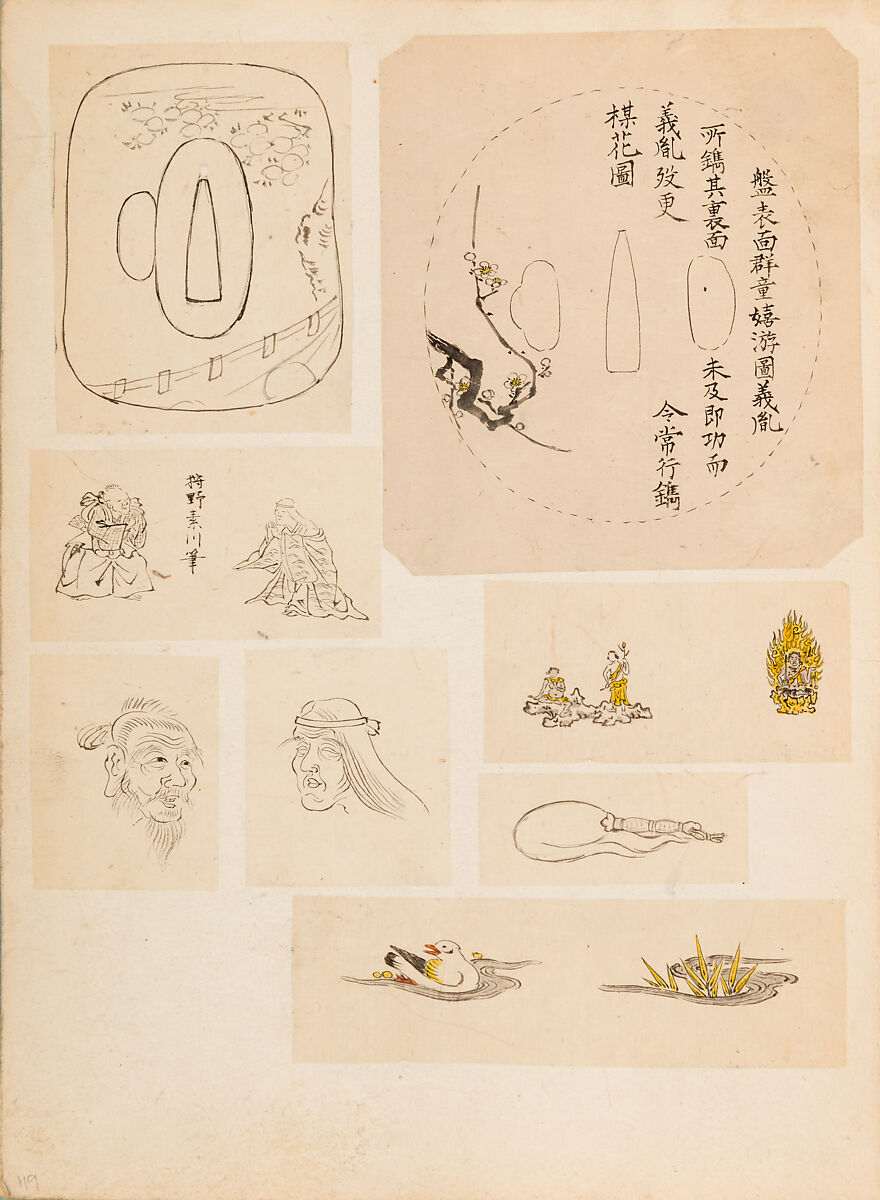 盤表面群童嬉游圖義胤
所鐫其裏面 未及即功而
義胤歿更 令常行鐫
楳花圖
狩野素川筆
119